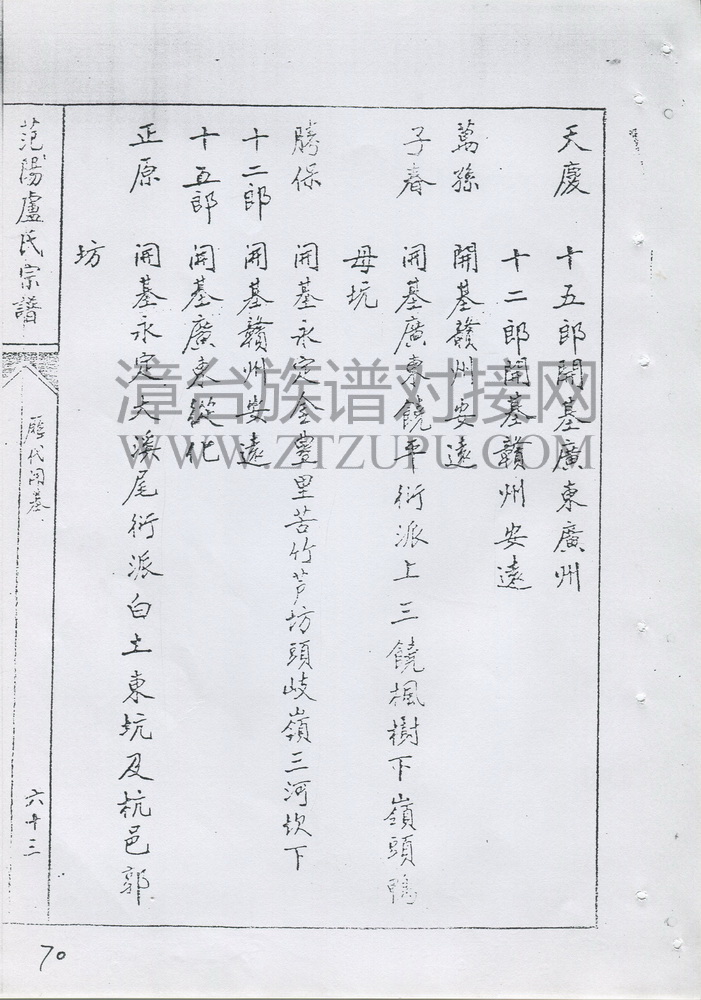 天慶 十五郎開基廣東廣州
十二郎開基贛州安遠
萬孫 開基贛州安遠
子春 開基廣東饒平衍派上三饒楓樹下嶺頭鴨
母坑
勝保 開基永定金豊里苦竹芦坊頭岐嶺三河坎下
十二郎 開基贛州安遠
十五郎 開基廣東從化
正原 開基永定大溪尾衍派白土東坑及杭邑郭
坊
范陽盧氏宗譜
歷代開基
六十三
70
漳台族谱对接网
WWW.ZTZUPU.COM